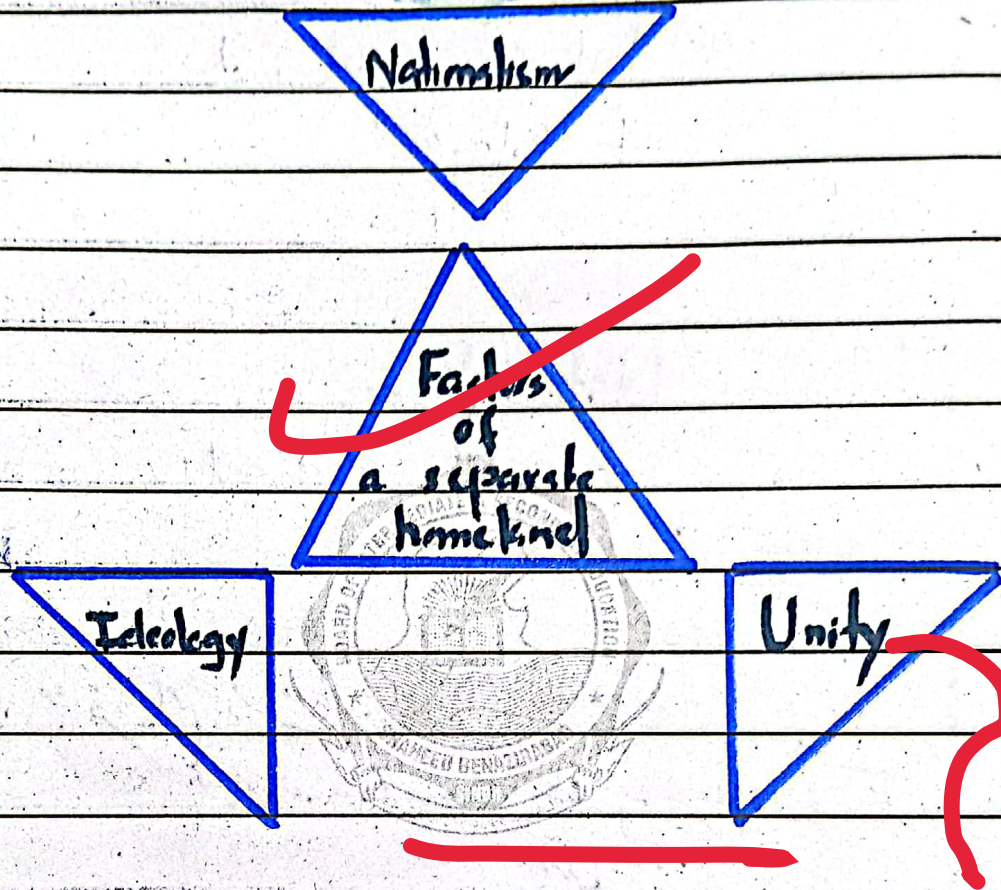 Nationalism
Factors
of
a separate
homeland
Ideology
Unity
BOARD OF INTERMEDIATE SECONDARY EDUCATION
SHAHEED BENAZIRABAD